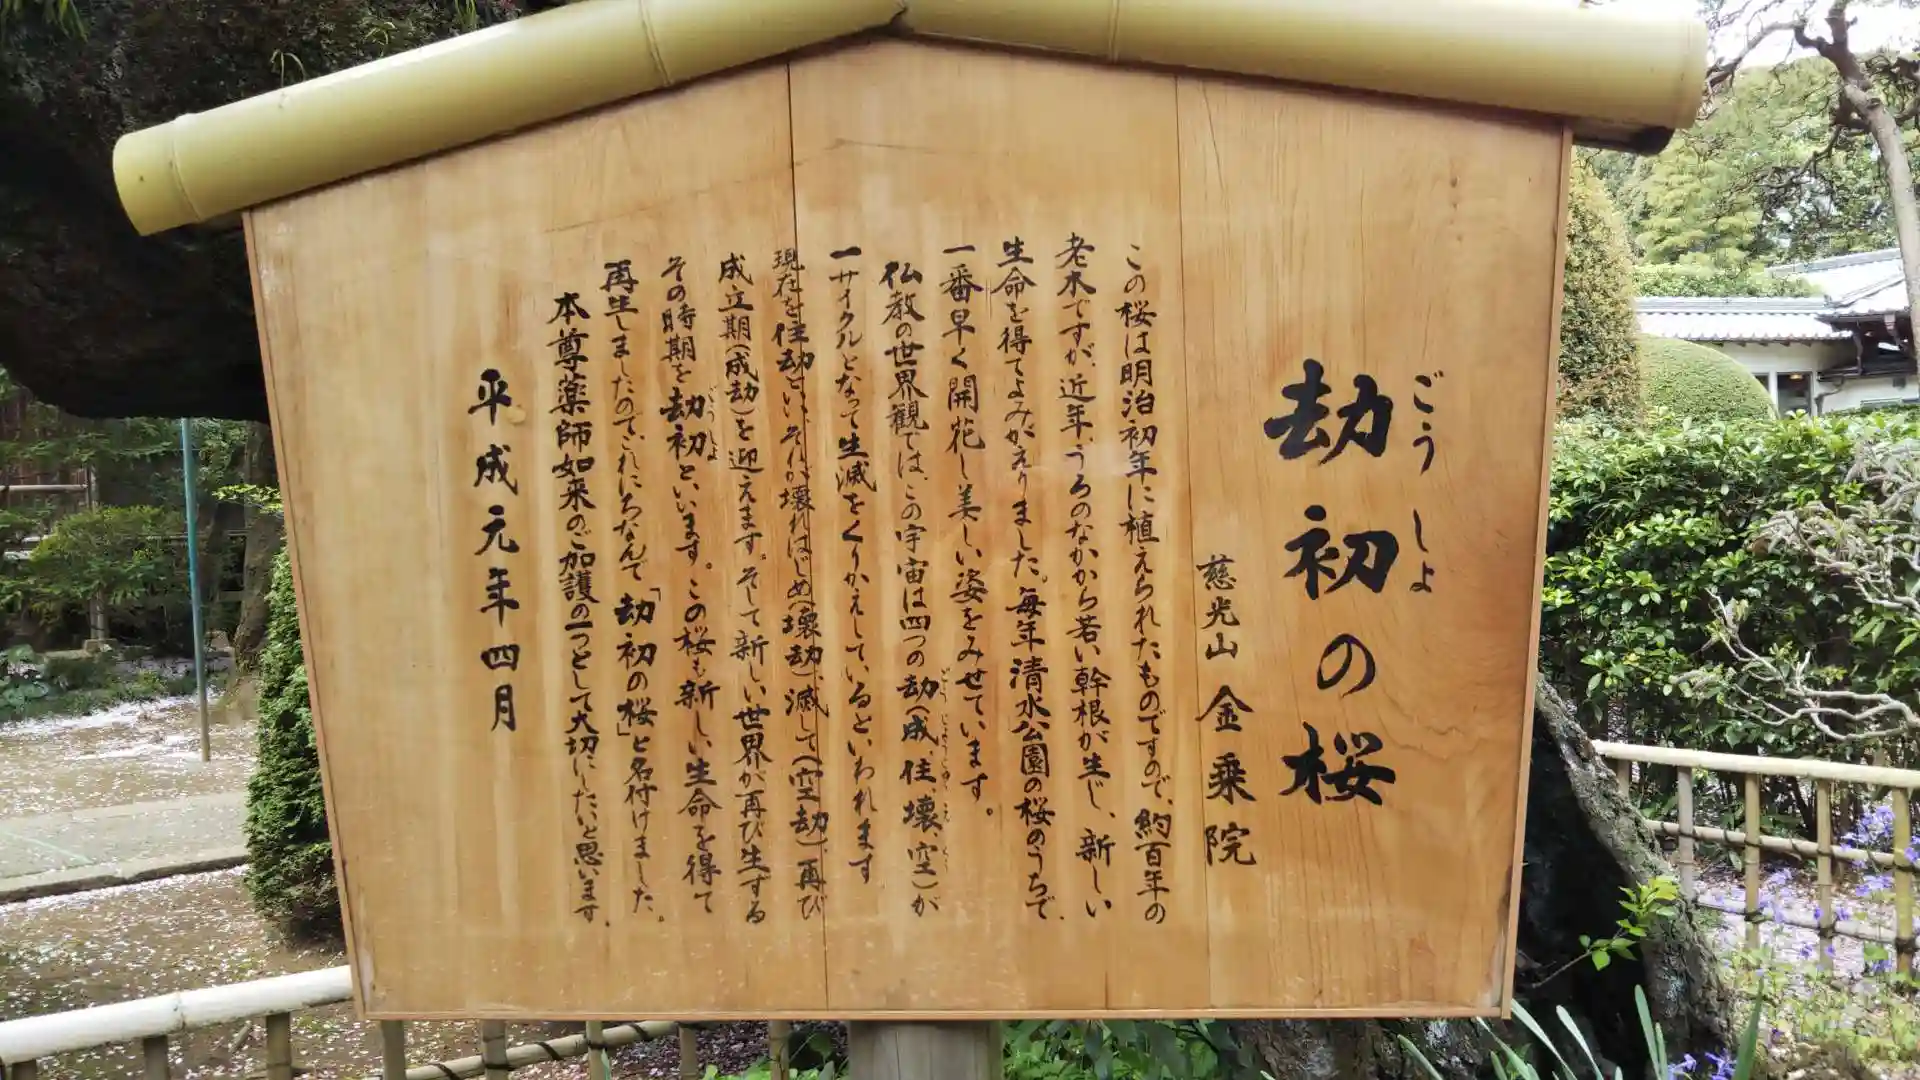 ごうしょ
劫初の桜
慈光山 金乗院
この桜は明治初年に植えられたものですので、約百年の
老木ですが、近年、うろのなかから若い幹根が生じ、新しい
生命を得てよみがえりました。毎年清水公園の桜のうちで、
一番早く開花し美しい姿をみせています。
仏教の世界観では、この宇宙は四つの劫(成、住、壊、空)が
一サイクルとなって生滅をくりかえしているといわれます
現在を住劫といい、それが壊れはじめ(壊劫)、滅して(空劫)、再び
成立期(成劫)を迎えます。そして新しい世界が再び生ずる
その時期を劫初といいます。この桜も新しい生命を得て
ごうしょ
再生しましたのでこれにちなんで「劫初の桜」と名付けました。
本尊薬師如来のご加護の一つとして大切にしたいと思います。
平成元年四月